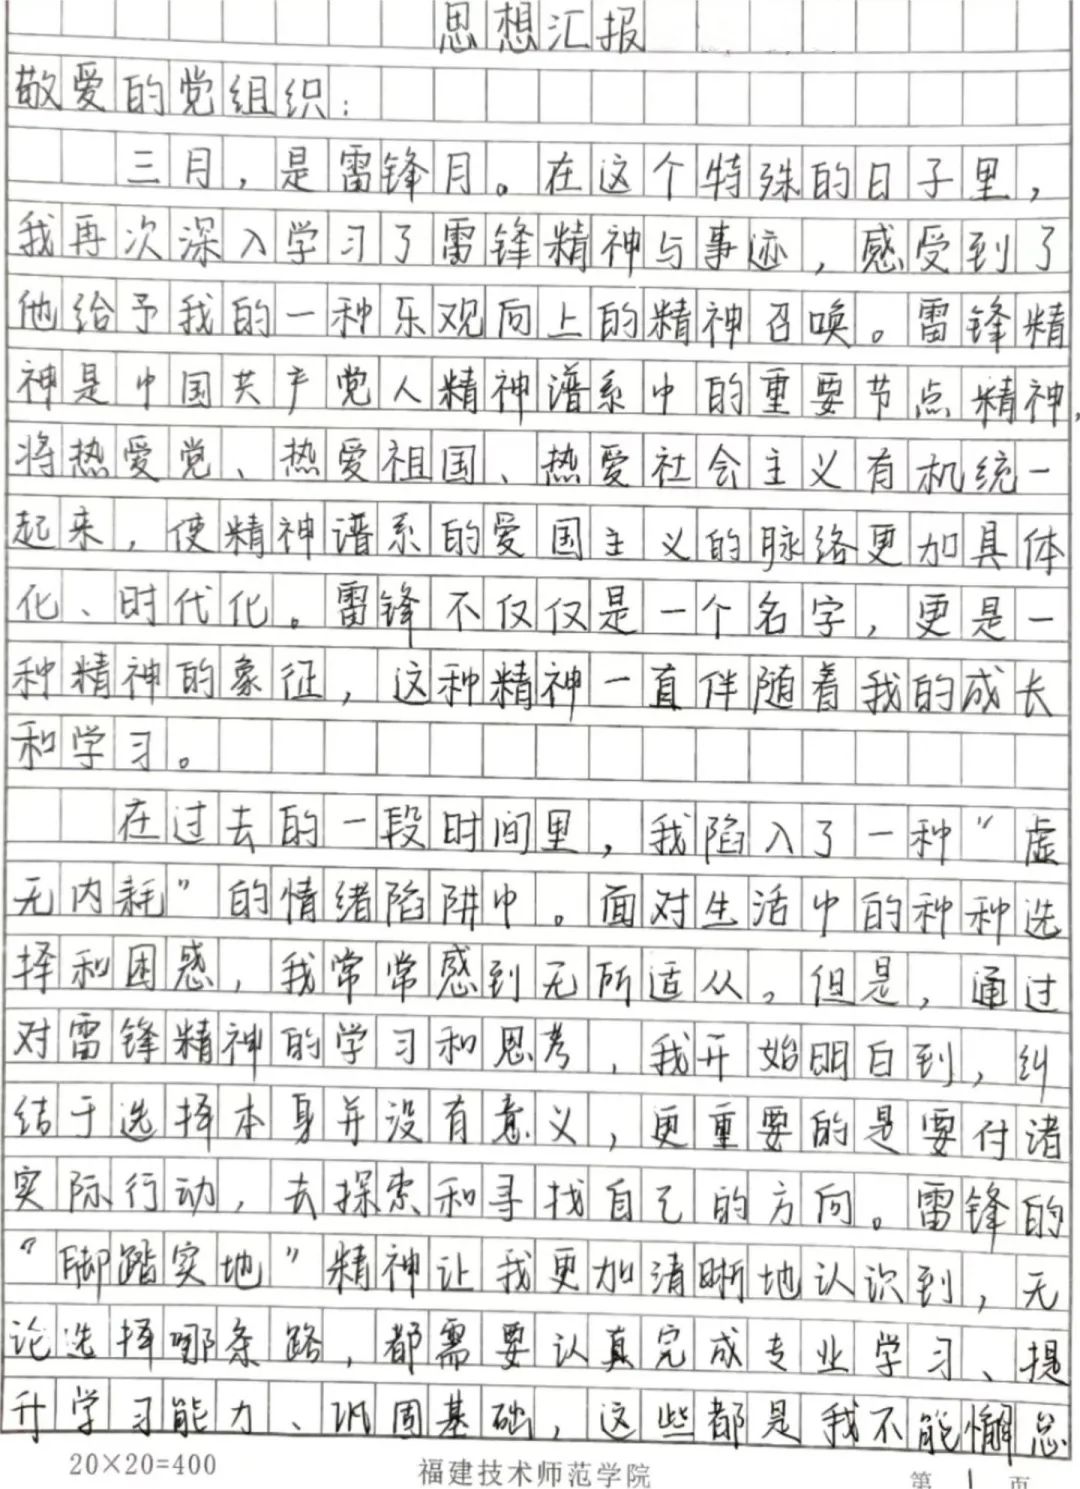 思想汇报
敬爱的党组织：
三月，是雷锋月。在这个特殊的日子里，
我再次深入学习了雷锋精神与事迹，感受到了
他给予我的一种乐观向上的精神召唤。雷锋精
神是中国共产党人精神谱系中的重要节点精神，
将热爱党、热爱祖国、热爱社会主义有机统一
起来，使精神谱系的爱国主义的脉络更加具体
化、时代化。雷锋不仅仅是一个名字，更是一
种精神的象征，这种精神一直伴随着我的成长
和学习。
在过去的一段时间里，我陷入了一种“虚
无内耗”的情绪陷阱中。面对生活中的种种选
择和困惑，我常常感到无所适从。但是，通过
对雷锋精神的学习和思考，我开始明白到，纠
结于选择本身并没有意义，更重要的是要付诸
实际行动，去探索和寻找自己的方向。雷锋的
“脚踏实地”精神让我更加清晰地认识到，无
论选择哪条路，都需要认真完成专业学习、提
升学习能力、巩固基础，这些都是我不能懈怠
20×20=400
福建技术师范学院
第 1 页